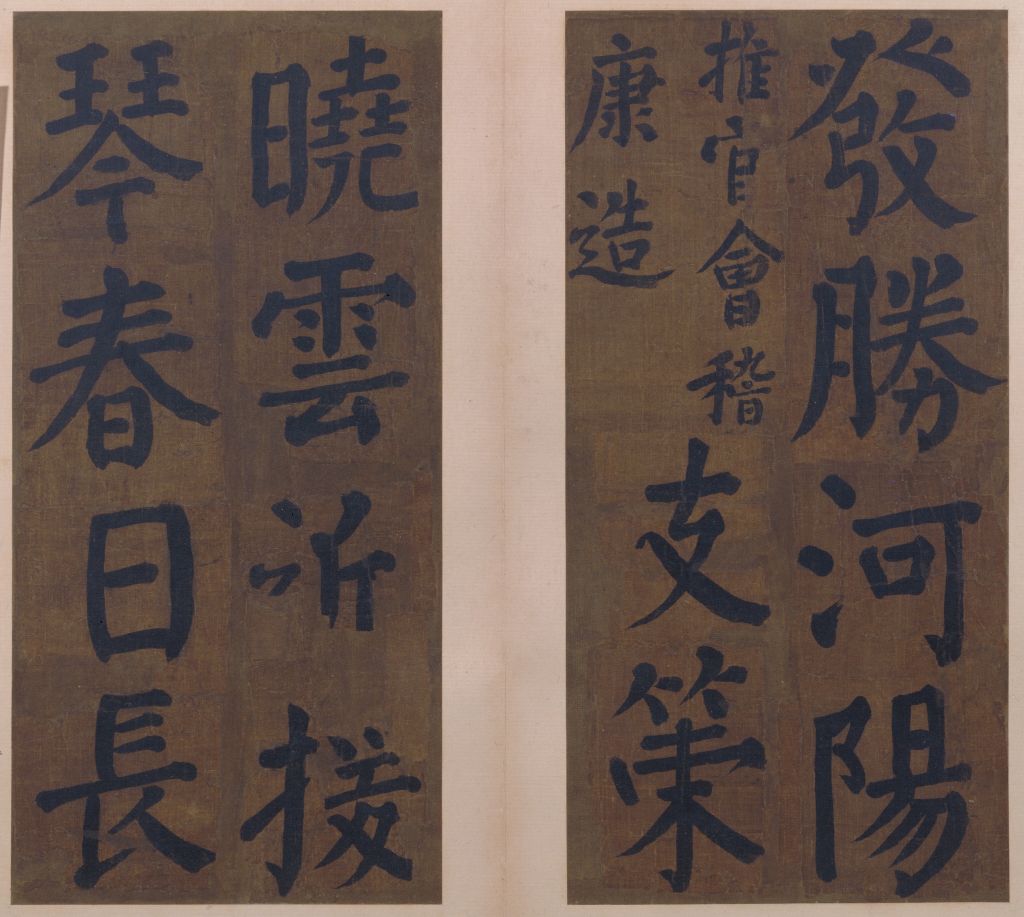 發勝河陽
推官會稽
康造
支策
曉雲
援
琴春日長